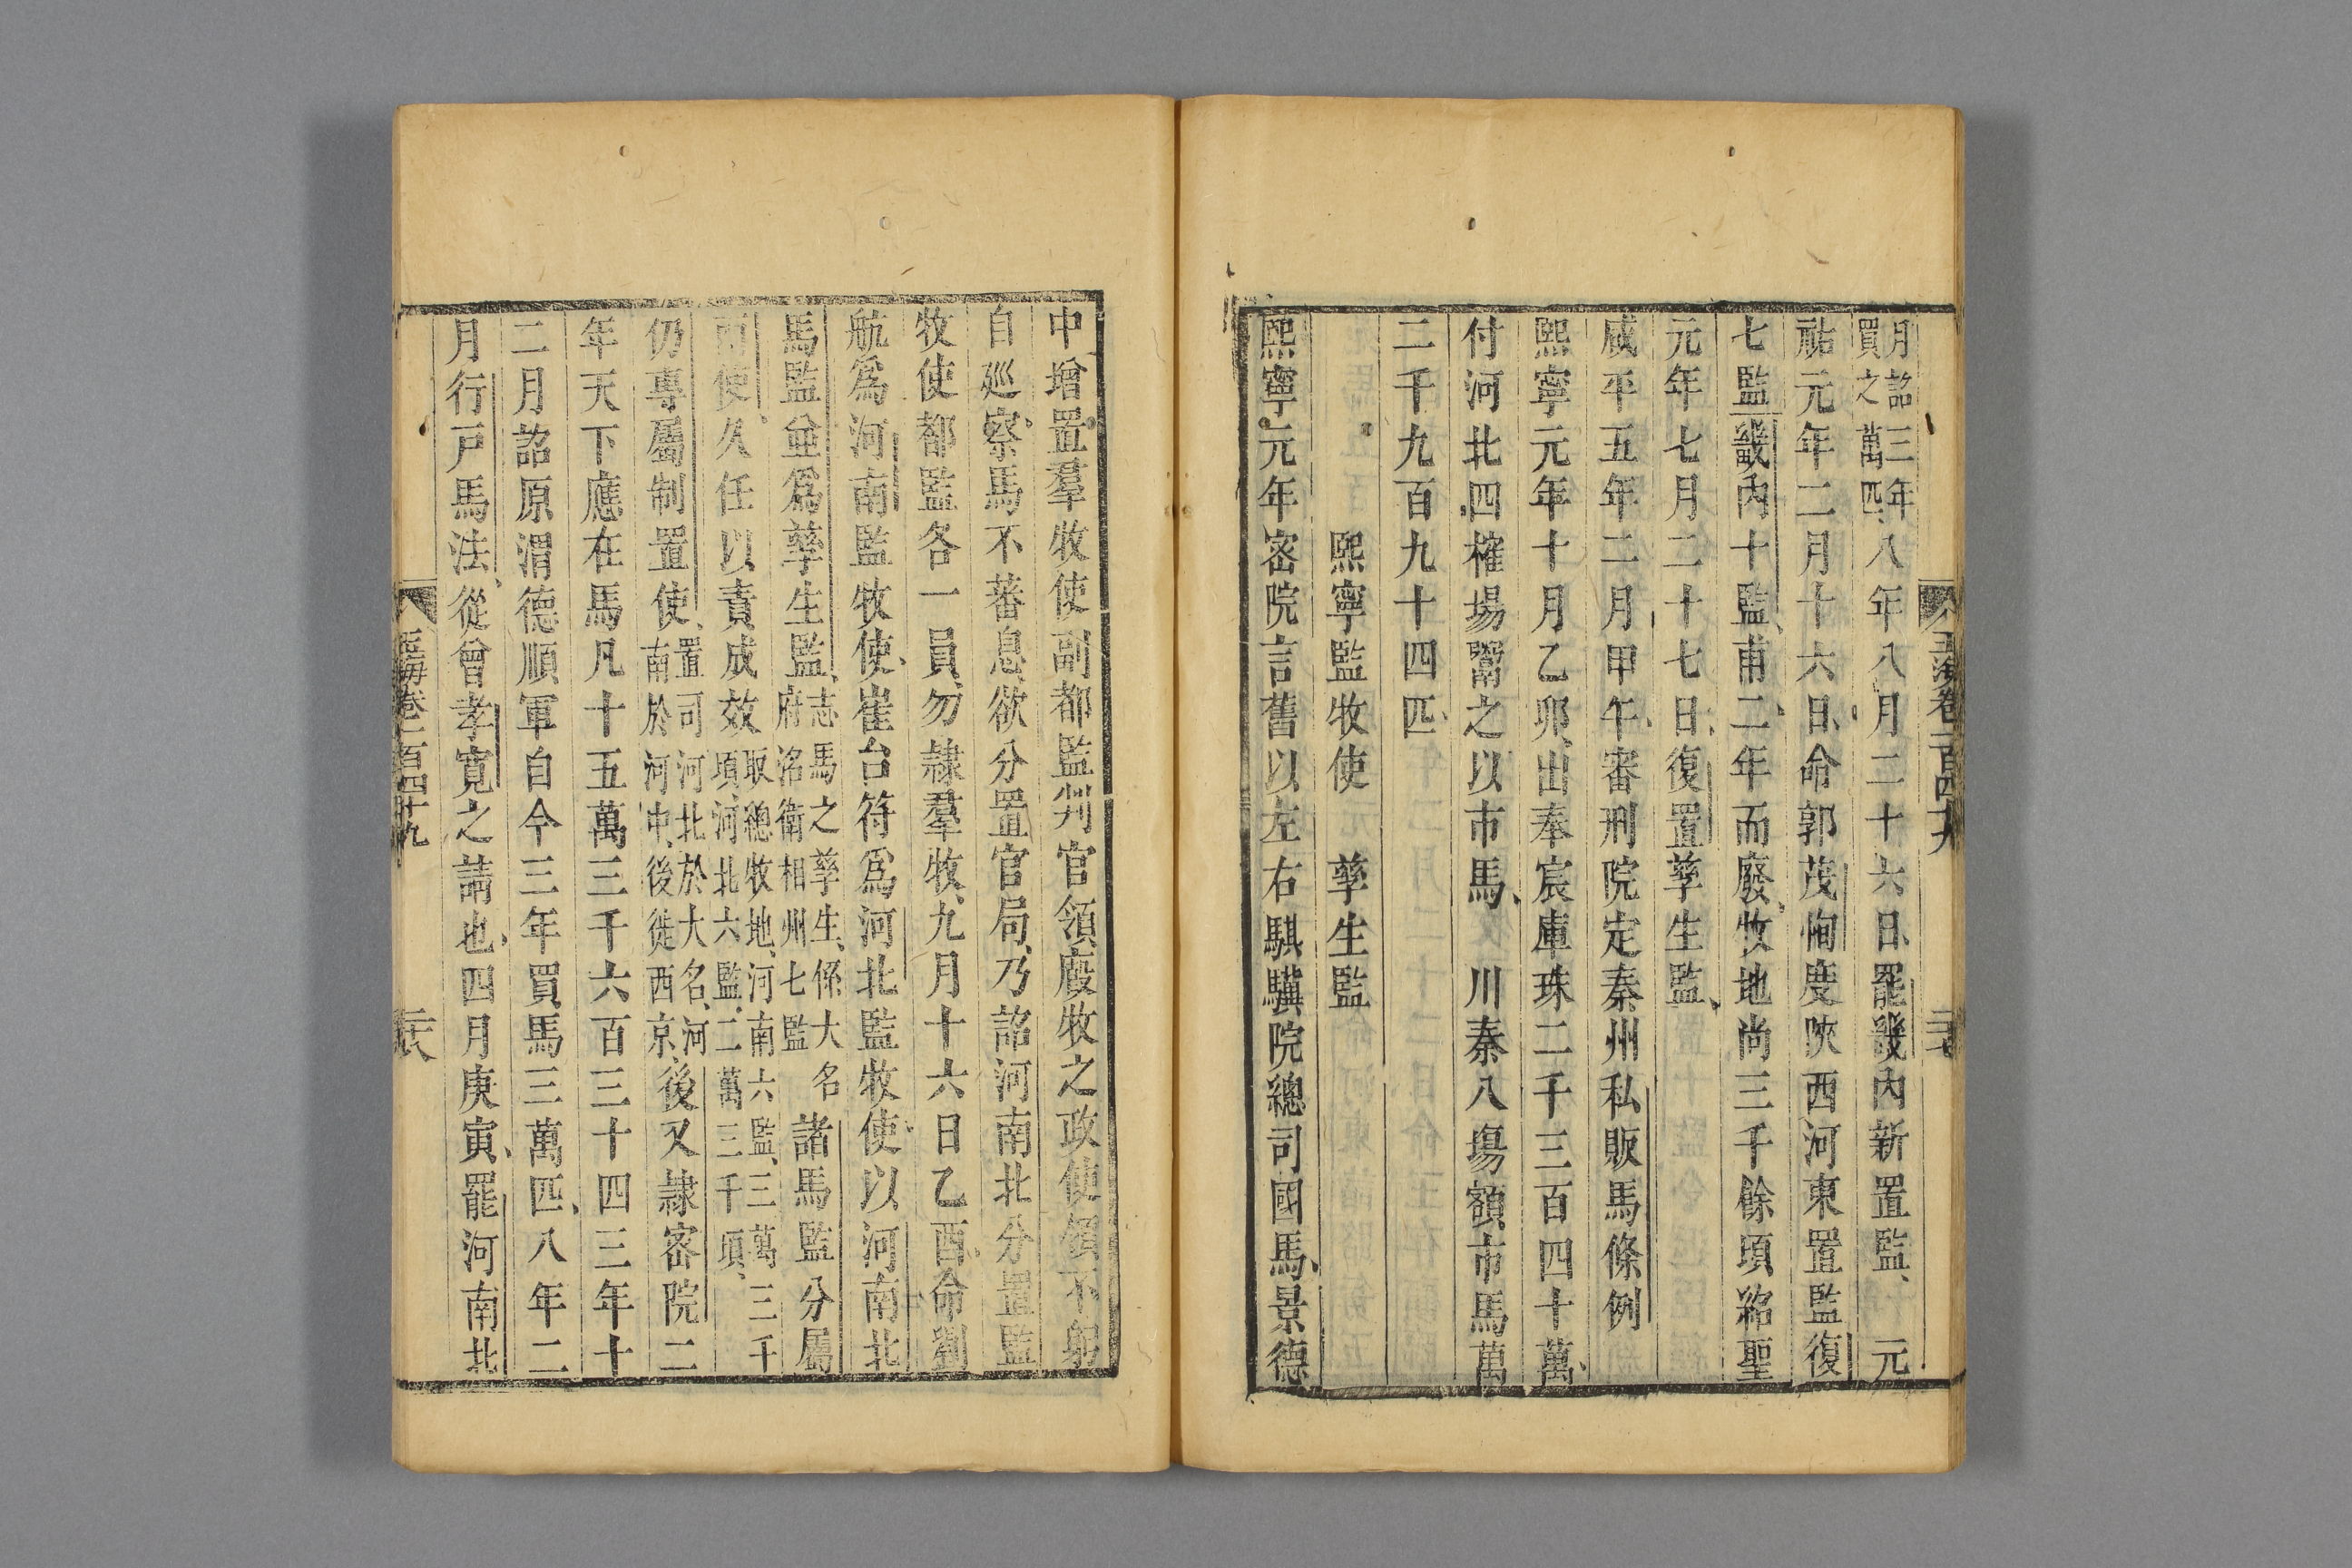 玉海卷一百四十九
二十七
月詔三年
買之萬匹八年八月二十六日罷畿內新置監元
祐元年二月十六日命郭茂恂度陝西河東置監復
七監畿內十監甫二年而廢牧地尚三千餘頃紹聖
元年七月二十七日復置孳生監
咸平五年二月甲午審刑院定秦州私販馬條例
熙寧元年十月乙卯出奉宸庫珠二千三百四十萬
付河北四榷場鬻之以市馬 川秦八場額市馬萬
二千九百九十四匹
熙寧監牧使 孳生監
熙寧元年密院言舊以左右騏驥院總司國馬景德
中增置羣牧使副都監判官領廄牧之政使領不躬
自廵察馬不蕃息欲分置官局乃詔河南北分置監
牧使都監各一員勿隷羣牧九月十六日乙酉命劉
航爲河南監牧使崔台符爲河北監牧使以河南北
馬監並爲孳生監志馬之孳生係大名
府洺衛相州七監諸馬監分屬
兩使久任以責成效取總牧地河南六監三萬三千
頃河北六監二萬三千頃
仍專屬制置使置司河北於大名河
南於河中後徙西京後又隷密院二
年天下應在馬凡十五萬三千六百三十四三年十
二月詔原渭德順軍自今三年買馬三萬匹八年二
月行戸馬法從曾孝寛之請也四月庚寅罷河南北
玉海卷一百四十九
二十八